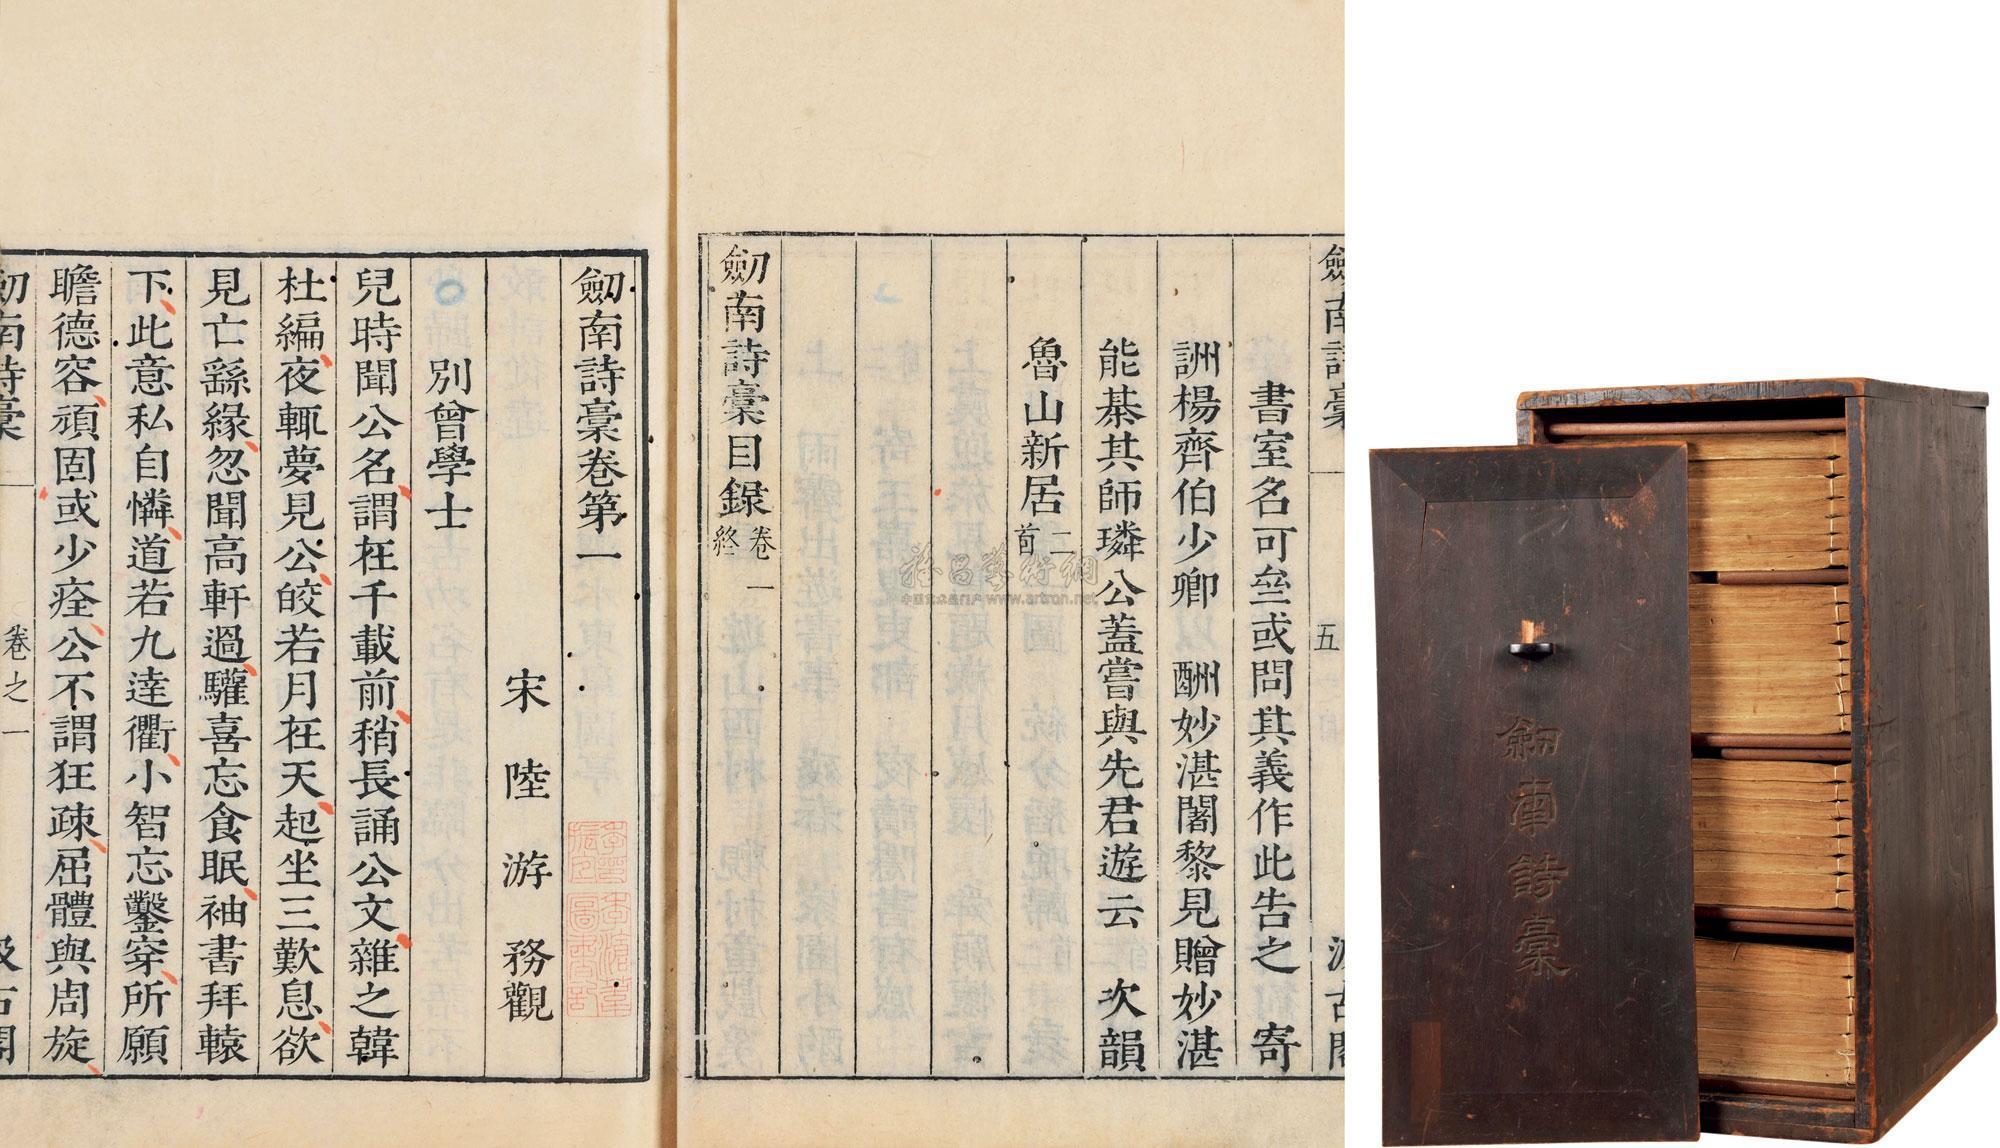 劒南詩稾
五
汲古閣
書室名可㕘或問其義作此告之　寄
詶楊齊伯少卿　酬妙湛闍黎見贈妙湛
能棊其師璘公蓋嘗與先君遊云　次韻
魯山新居二首
劒南詩稾目錄卷一終
劒南詩稾卷第一
宋　陸　游　務觀
別曾學士
兒時聞公名謂在千載前稍長誦公文雜之韓
杜編夜輒夢見公皎若月在天起坐三歎息欲
見亡繇緣忽聞高軒過驩喜忘食眠袖書拜轅
下此意私自憐道若九逵衢小智忘鑿穿所願
瞻德容頑固或少痊公不謂狂疎屈體與周旋
劒南詩稾
卷之一
汲古閣
劒南詩稾
www.artron.net